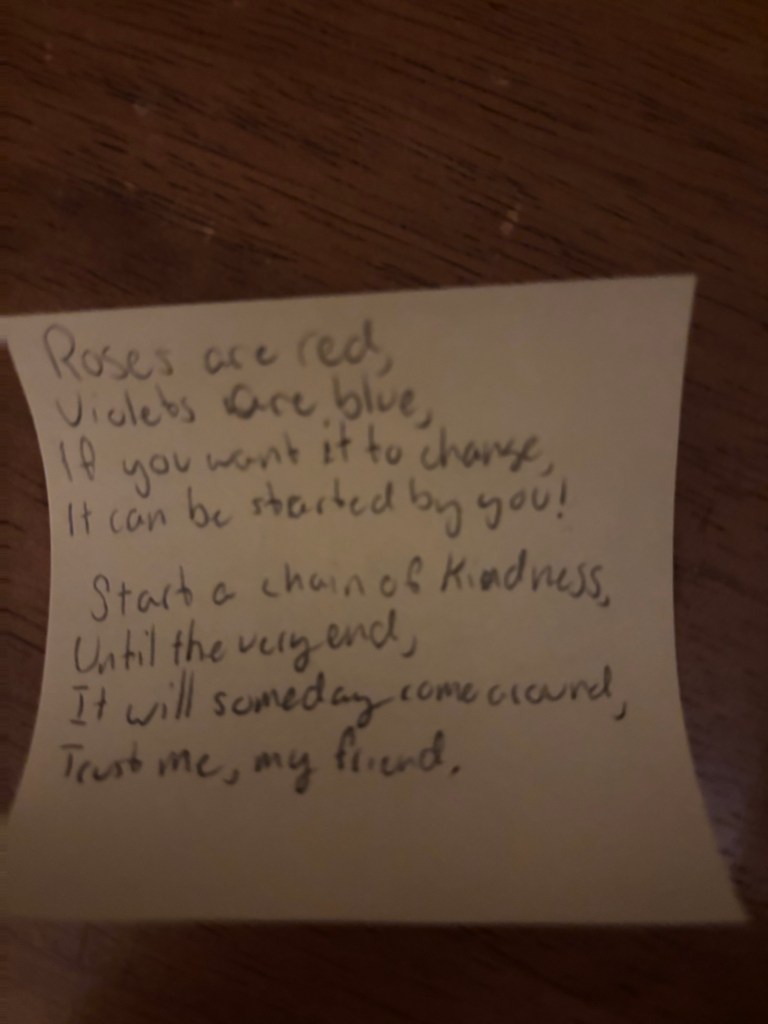 Roses are red,
Violets are blue,
If you want it to change,
It can be started by you!
Start a chain of Kindness,
Until the very end,
It will someday come around,
Trust me, my friend.